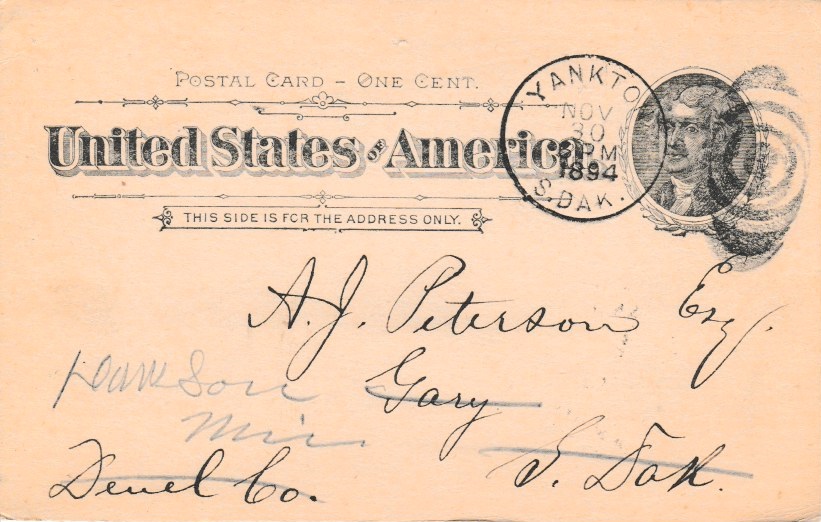 POSTAL CARD - ONE CENT.
United States of America
YANKTO
NOV
30
PM
1894
S. DAK.
THIS SIDE IS FOR THE ADDRESS ONLY.
A. J. Peterson Esq.
Gary
Min
Deuel Co. S. Dak.